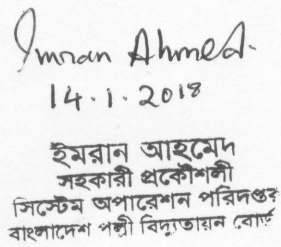 Imran Ahmed.
14.1.2018
ইমরান আহমেদ
সহকারী প্রকৌশলী
সিস্টেম অপারেশন পরিদপ্তর
বাংলাদেশ পল্লী বিদ্যুতায়ন বোর্ড